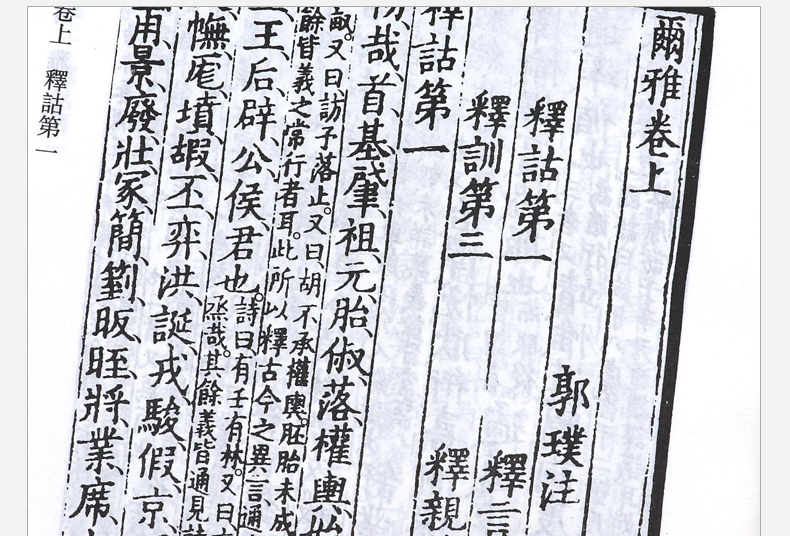 爾雅卷上
郭璞注
釋詁第一
釋訓第三 釋親
釋詁第一
哉、首、基、肇、祖、元、胎、俶、落、權輿、始
又曰訪予落止。又曰胡不承權輿。胚胎未成
餘皆義之常行者耳。此所以釋古今之異言通
王、后、辟、公、侯、君也。
詩曰有壬有林。又曰
烝哉。其餘義皆通見詩
幠、厖、墳、嘏、丕、弈、洪、誕、戎、駿、假、京、
甫、景、廢、壯、冢、簡、箌、昄、晊、將、業、席、
卷上 釋詁第一